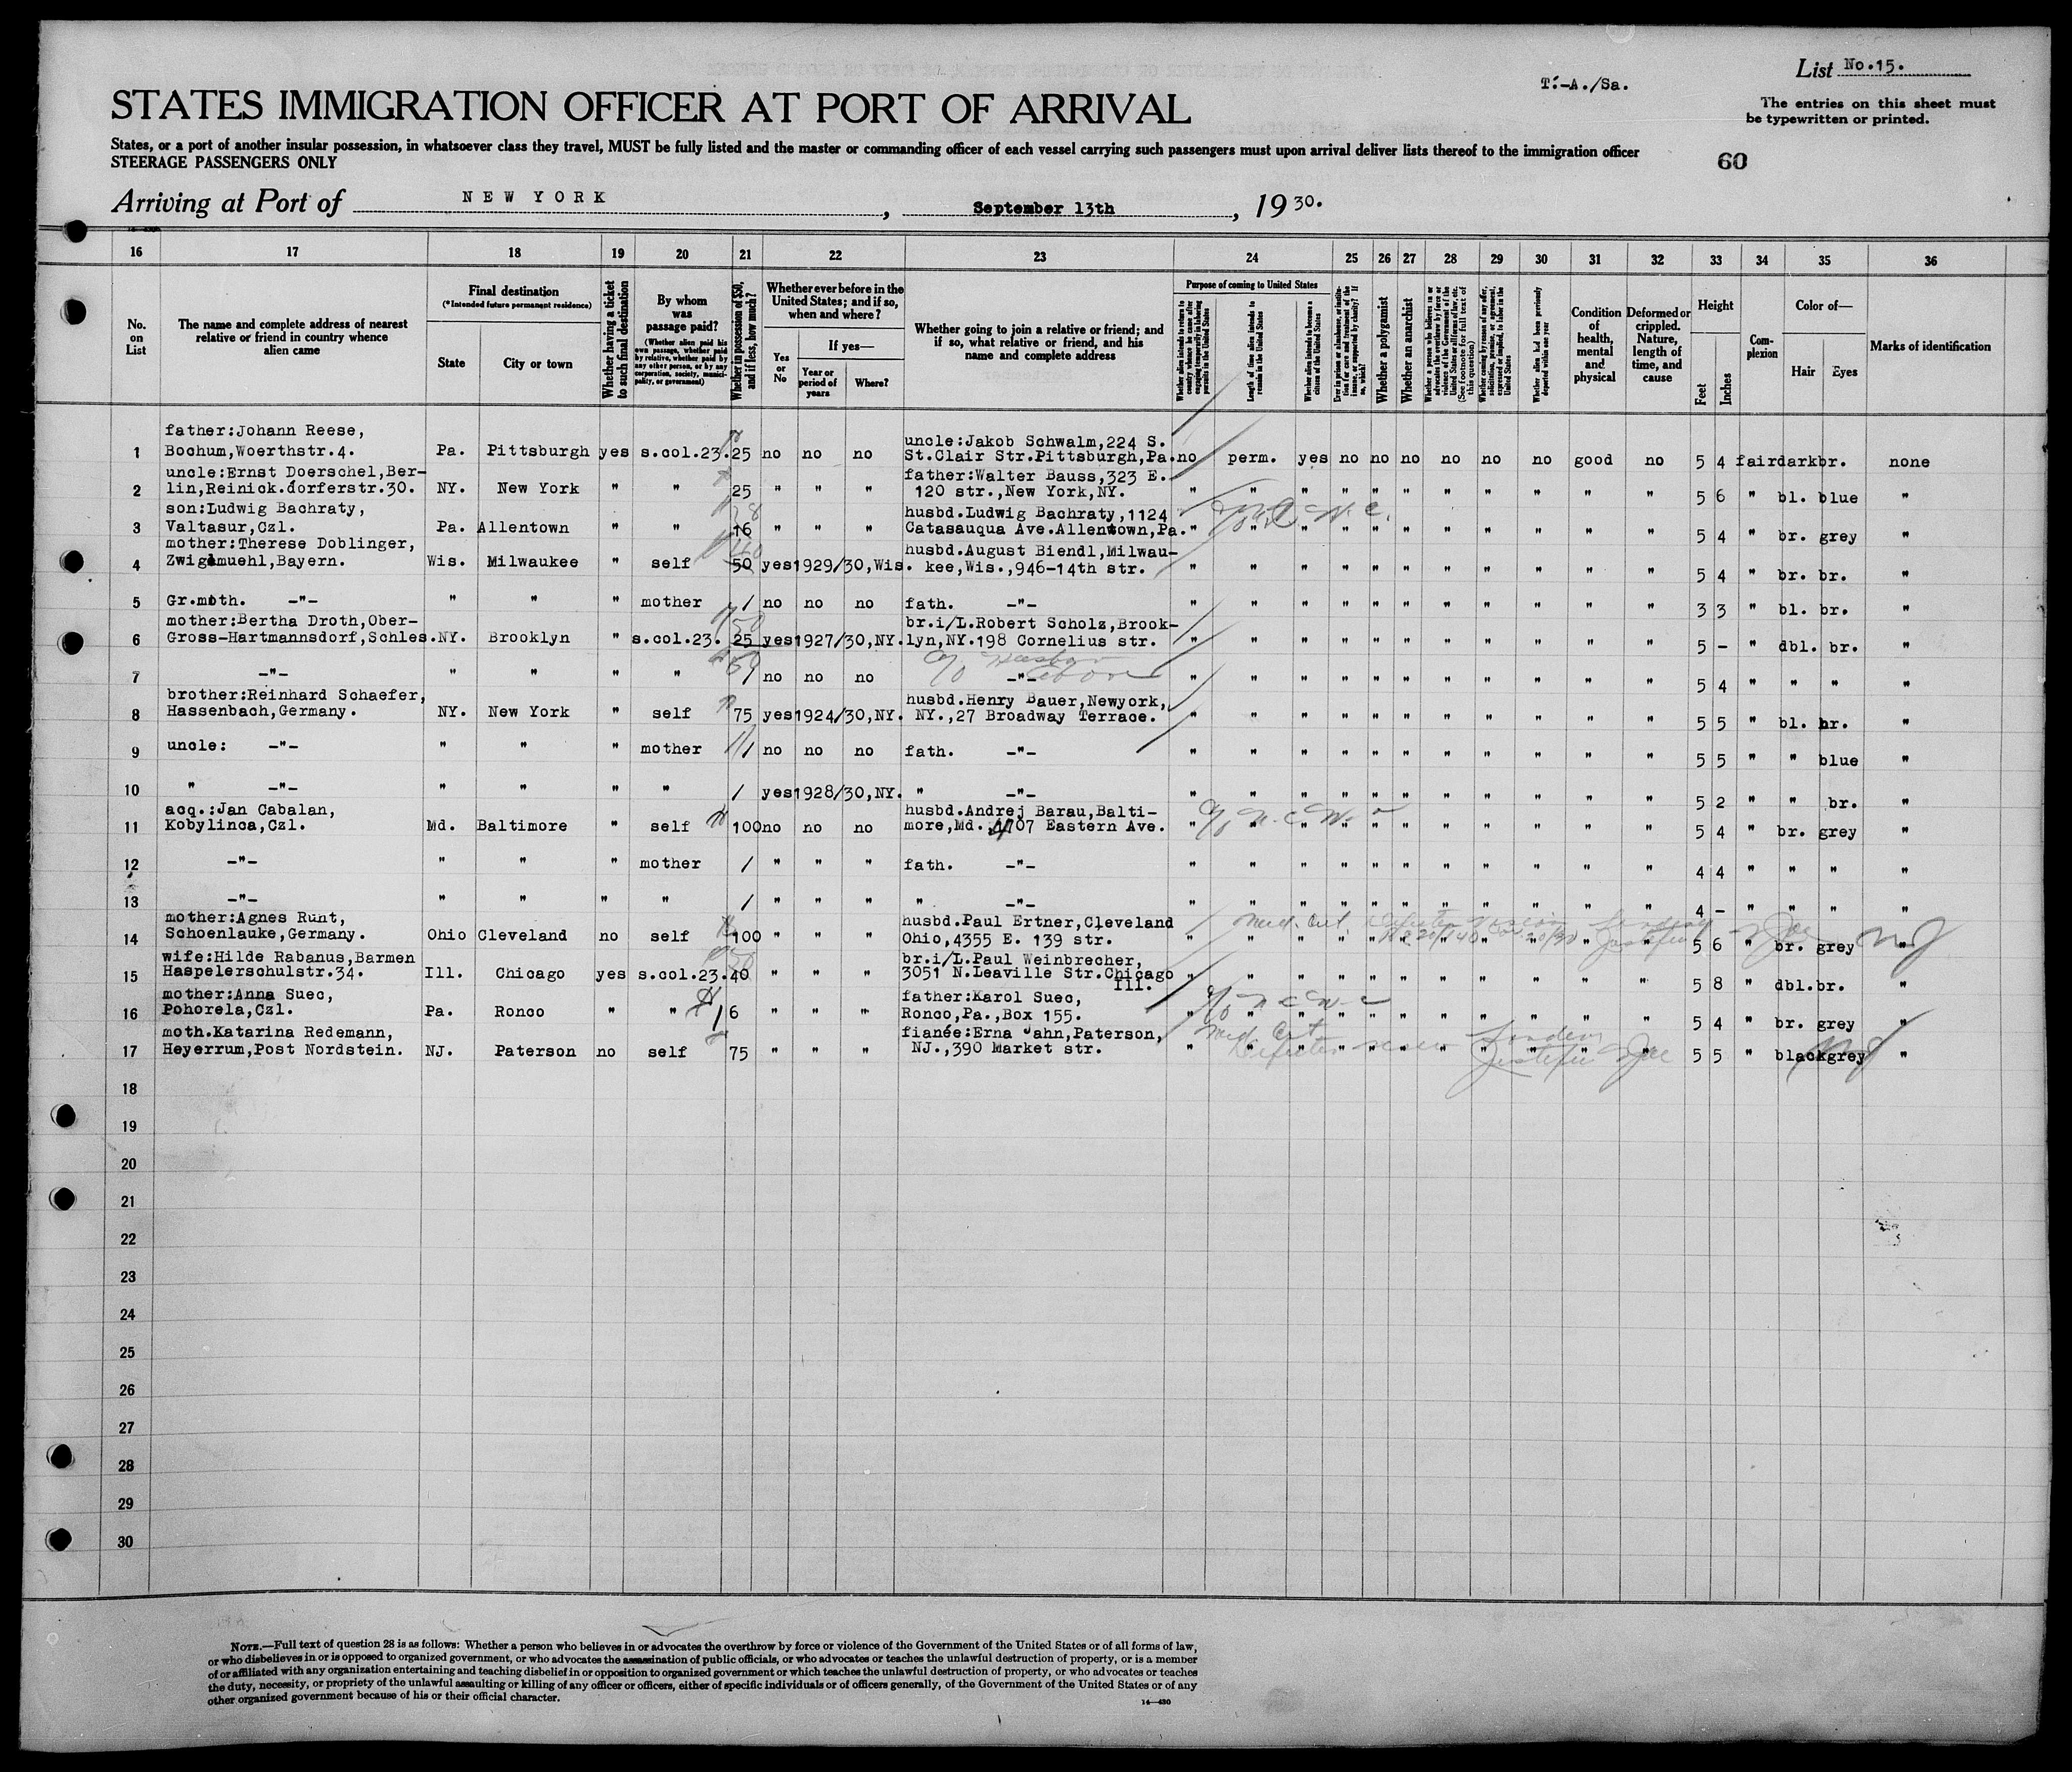 T.-A./Sa.
List No.15.
STATES IMMIGRATION OFFICER AT PORT OF ARRIVAL
The entries on this sheet must
be typewritten or printed.
States, or a port of another insular possession, in whatsoever class they travel, MUST be fully listed and the master or commanding officer of each vessel carrying such passengers must upon arrival deliver lists thereof to the immigration officer
STEERAGE PASSENGERS ONLY
60
Arriving at Port of NEW YORK, September 13th, 1930.
16 17 18 19 20 21 22 23 24 25 26 27 28 29 30 31 32 33 34 35 36
No. on List
The name and complete address of nearest relative or friend in country whence alien came
Final destination
(*Intended future permanent residence)
State
City or town
Whether having a ticket to such final destination
By whom was passage paid?
(Whether alien paid his own passage, whether paid by relative, whether paid by any other person, or by any corporation, society, municipality, or government)
Whether in possession of $50, and if less, how much?
Whether ever before in the United States; and if so, when and where?
Yes or No
If yes—
Year or period of years
Where?
Whether going to join a relative or friend; and if so, what relative or friend, and his name and complete address
Purpose of coming to United States
Length of time alien intends to remain in the United States
Whether alien intends to become a citizen of the United States
Whether a polygamist
Whether an anarchist
Whether alien had been previously deported within one year
Condition of health, mental and physical
Deformed or crippled. Nature, length of time, and cause
Height
Feet
Inches
Complexion
Color of—
Hair
Eyes
Marks of identification
father:Johann Reese,
1 Bochum,Woerthstr.4. Pa. Pittsburgh yes s.col.23. 25 no no no uncle:Jakob Schwalm,224 S.
St.Clair Str.Pittsburgh,Pa. no perm. yes no no no no no no good no 5 4 fair dark br. none
uncle:Ernst Doerschel,Ber-
2 lin,Reinick.dorferstr.30. NY. New York " " 25 " " " father:Walter Bauss,323 E.
120 str.,New York,NY. " " " " " " " " " " " 5 6 " bl. blue "
son:Ludwig Bachraty,
3 Valtasur,Czl. Pa. Allentown " " 16 " " " husbd.Ludwig Bachraty,1124
Catasauqua Ave.Allentown,Pa. " " " " " " " " " " " 5 4 " br. grey "
mother:Therese Doblinger,
4 Zwiglmuehl,Bayern. Wis. Milwaukee " self 50 yes 1929/30,Wis. husbd.August Biendl,Milwau-
kee,Wis.,946-14th str. " " " " " " " " " " " 5 4 " br. br. "
5 Gr.moth. -"- " " " mother / no no no fath. -"- " " " " " " " " " " " 3 3 " bl. br. "
mother:Bertha Droth,Ober-
6 Gross-Hartmannsdorf,Schles. NY. Brooklyn " s.col.23. 25 yes 1927/30,NY. br.i/L.Robert Scholz,Brook-
lyn,NY.198 Cornelius str. " " " " " " " " " " " 5 - " dbl. br. "
7 -"- " " " " / no no no -"- " " " " " " " " " " " 5 4 " " " "
brother:Reinhard Schaefer,
8 Hassenbach,Germany. NY. New York " self 75 yes 1924/30,NY. husbd.Henry Bauer,Newyork,
NY.,27 Broadway Terrace. " " " " " " " " " " " 5 5 " bl. br. "
9 uncle: -"- " " " mother / no no no fath. -"- " " " " " " " " " " " 5 5 " " blue "
10 " -"- " " " " / yes 1928/30,NY. " -"- " " " " " " " " " " " 5 2 " " br. "
acq.:Jan Cabalan,
11 Kobylinca,Czl. Md. Baltimore " self 100 no no no husbd.Andrej Barau,Balti-
more,Md. 4707 Eastern Ave. " " " " " " " " " " " 5 4 " br. grey "
12 -"- " " " mother / " " " fath. -"- " " " " " " " " " " " 4 4 " " " "
13 -"- " " " " / " " " " -"- " " " " " " " " " " " 4 - " " " "
mother:Agnes Runt,
14 Schoenlauke,Germany. Ohio Cleveland no self 100 " " " husbd.Paul Ertner,Cleveland
Ohio,4355 E. 139 str. " " " " " " " " " " " 5 6 " br. grey "
wife:Hilde Rabanus,Barmen
15 Haspelerschulstr.34. Ill. Chicago yes s.col.23. 40 " " " br.i/L.Paul Weinbrecher,
3051 N.Leaville Str.Chicago
Ill. " " " " " " " " " " " 5 8 " dbl. br. "
mother:Anna Suec,
16 Pohorela,Czl. Pa. Ronco " " 16 " " " father:Karol Suec,
Ronco,Pa.,Box 155. " " " " " " " " " " " 5 4 " br. grey "
moth.Katarina Redemann,
17 Heyerrum,Post Nordstein. NJ. Paterson no self 75 " " " fianée:Erna Jahn,Paterson,
NJ.,390 Market str. " " " " " " " " " " " 5 5 " black grey "
18
19
20
21
22
23
24
25
26
27
28
29
30
NOTE.—Full text of question 28 is as follows: Whether a person who believes in or advocates the overthrow by force or violence of the Government of the United States or of all forms of law,
or who disbelieves in or is opposed to organized government, or who advocates the assassination of public officials, or who advocates or teaches the unlawful destruction of property, or is a member
of or affiliated with any organization entertaining and teaching disbelief in or opposition to organized government or which teaches the unlawful destruction of property, or who advocates or teaches
the duty, necessity, or propriety of the unlawful assaulting or killing of any officer or officers, either of specific individuals or of officers generally, of the Government of the United States or of any
other organized government because of his or their official character.
14—430